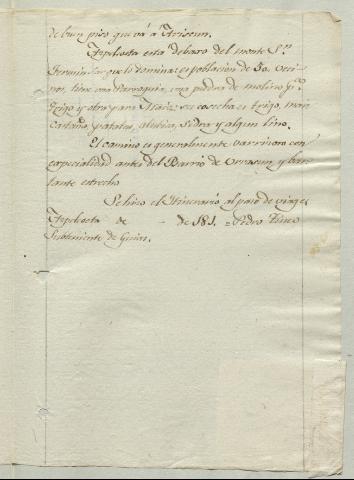 de buen piso que vá á Arizcun.
Azpilcueta está debajo del monte Sn.
Fermin que lo domina: es poblacion de 50. veci-
nos, tiene una Parroquia, una piedra de molino pa.
trigo y otra para Maiz: su cosecha es trigo, maiz
castaña, patatas, alubias, Sidra y algun lino.
El camino es generalmente barrizoso con
especialidad antes del Barrio de Urrasun y bas-
tante estrecho
Se hizo el Itinerario al paso de viage
Azpilcueta de - de 181. = Pedro
Subteniente de Guias.